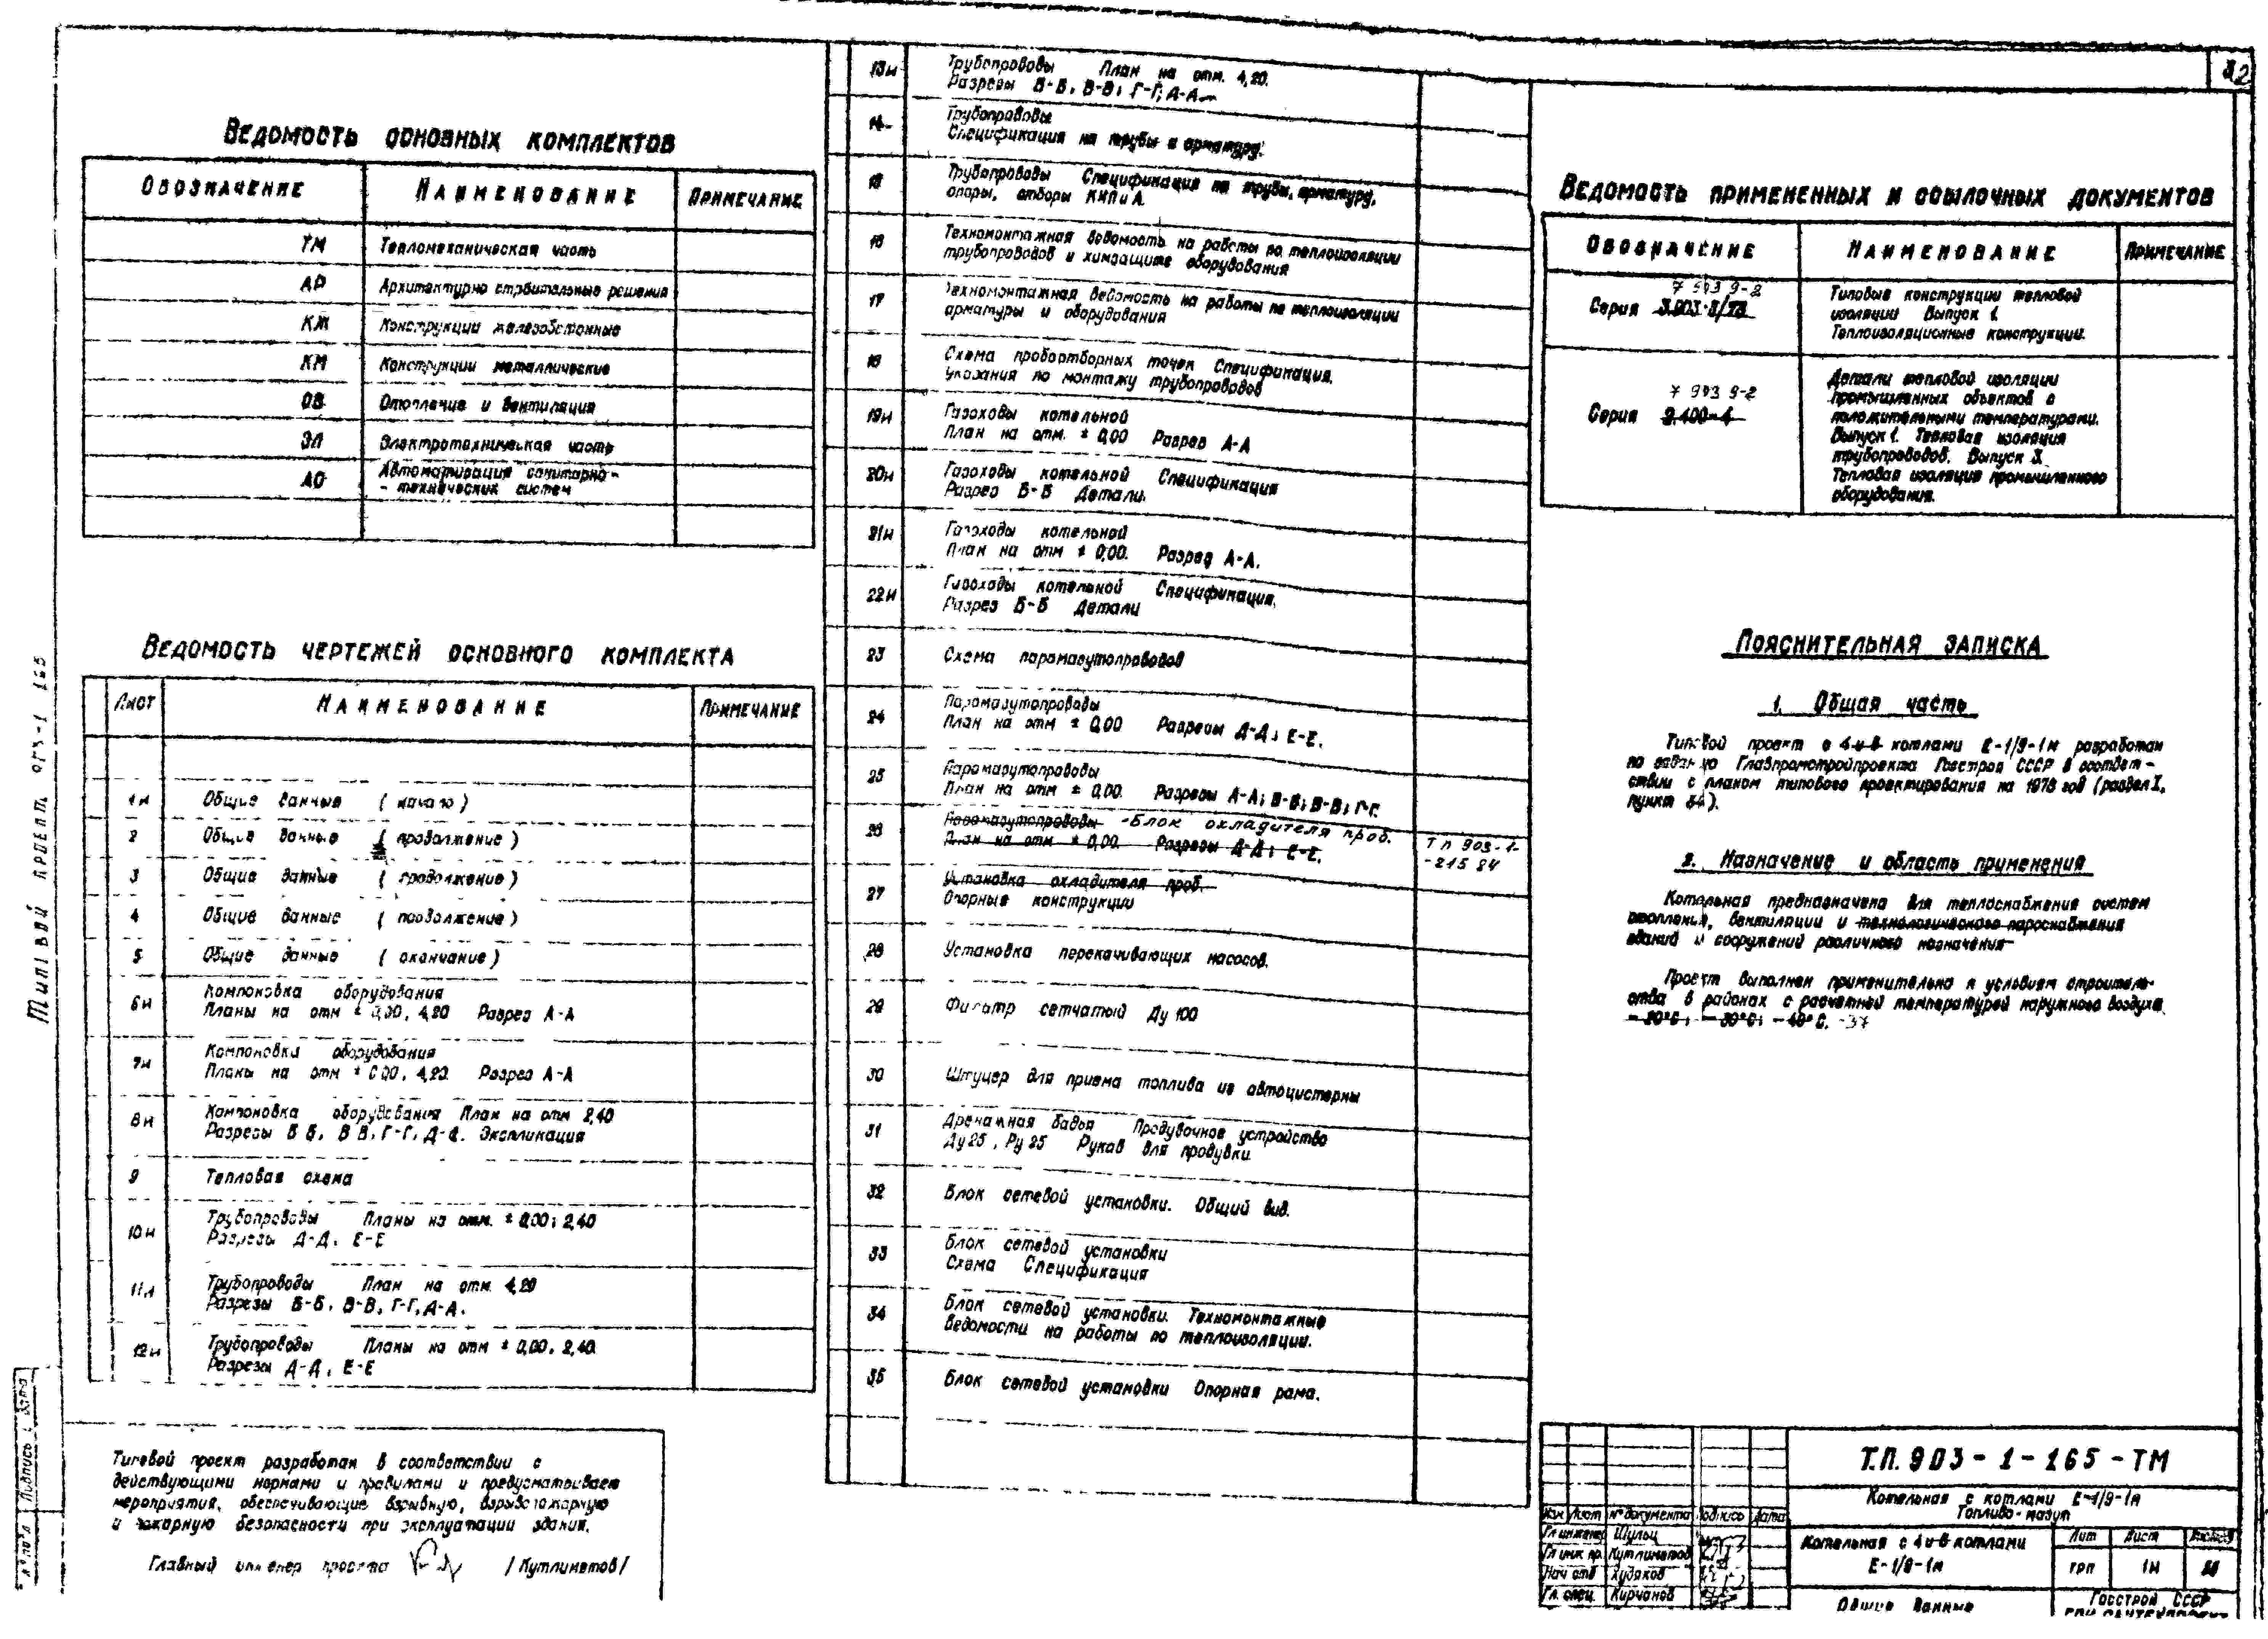 12
Ведомость основных комплектов
Обозначение Наименование Примечание
ТМ Тепломеханическая часть
АР Архитектурно строительные решения
КЖ Конструкции железобетонные
КМ Конструкции металлические
ОВ Отопление и вентиляция
ЭЛ Электротехническая часть
АО Автоматизация санитарно-
- технических систем
Ведомость чертежей основного комплекта
Лист Наименование Примечание
1м Общие данные (начало)
2 Общие данные (продолжение)
3 Общие данные (продолжение)
4 Общие данные (продолжение)
5 Общие данные (окончание)
6м Компоновка оборудования
Планы на отм ± 0,00, 4,20 Разрез А-А
7м Компоновка оборудования
Планы на отм ± 0.00, 4,20. Разрез А-А
8м Компоновка оборудования План на отм 2,40
Разрезы Б Б, В В, Г-Г, Д-Д. Экспликация
9 Тепловая схема
10м Трубопроводы Планы на отм. ± 0,00; 2,40
Разрезы Д-Д, Е-Е
11м Трубопроводы План на отм. 4,20
Разрезы Б-Б, В-В, Г-Г, А-А.
12м Трубопроводы Планы на отм ± 0,00, 2,40.
Разрезы Д-Д, Е-Е
Типовой проект разработан в соответствии с
действующими нормами и правилами и предусматривает
мероприятия, обеспечивающие взрывную, взрывопожарную
и пожарную безопасность при эксплуатации здания.
Главный инженер проекта /Кутлиметов/
13м Трубопроводы План на отм. 4,20.
Разрезы Б-Б, В-В, Г-Г, А-А
14 Трубопроводы
Спецификация на трубы и арматуру.
15 Трубопроводы Спецификация на трубы, арматуру,
опоры, отборы КИП и А.
16 Техномонтажная ведомость на работы по теплоизоляции
трубопроводов и химзащите оборудования
17 Техномонтажная ведомость на работы по теплоизоляции
арматуры и оборудования
18 Схема проботборных точек Спецификация.
Указания по монтажу трубопроводов
19м Газоходы котельной
План на отм. ± 0,00 Разрез А-А
20м Газоходы котельной Спецификация
Разрез Б-Б Детали.
21м Газоходы котельной
План на отм ± 0,00. Разрез А-А.
22м Газоходы котельной Спецификация.
Разрез Б-Б Детали
23 Схема паромазутопроводов
24 Паромазутопроводы
План на отм ± 0,00 Разрезы Д-Д; Е-Е.
25 Паромазутопроводы
План на отм ± 0,00. Разрезы А-А; Б-Б; В-В; Г-Г.
26 Паромазутопроводы - Блок охладителя проб.
План на отм ± 0,00. Разрезы Д-Д; Е-Е.
Т п 903-1-
-215 84
27 Установка охладителя проб.
Опорные конструкции
28 Установка перекачивающих насосов.
29 Фильтр сетчатый Ду 100
30 Штуцер для приема топлива из автоцистерны
31 Дренажная бадья Продувочное устройство
Ду 25, Ру 25 Рукав для продувки
32 Блок сетевой установки. Общий вид.
33 Блок сетевой установки
Схема Спецификация
34 Блок сетевой установки. Техномонтажные
ведомости на работы по теплоизоляции.
35 Блок сетевой установки Опорная рама.
Ведомость примененных и ссылочных документов
Обозначение Наименование Примечание
7 903 9-2
Серия 3.903-5/73
Типовые конструкции тепловой
изоляции Выпуск 1.
Теплоизоляционные конструкции.
7 903 9-2
Серия 2.400-4
Детали тепловой изоляции
промышленных объектов с
положительными температурами.
Выпуск 1. Тепловая изоляция
трубопроводов. Выпуск 3.
Тепловая изоляция промышленного
оборудования.
Пояснительная записка
1. Общая часть
Типовой проект с 4 и 6 котлами Е-1/9-1м разработан
по заданию Главпромстройпроекта Госстроя СССР в соответ-
ствии с планом типового проектирования на 1978 год (раздел I,
пункт 34).
2. Назначение и область применения
Котельная предназначена для теплоснабжения систем
отопления, вентиляции и технологического пароснабжения
зданий и сооружений различного назначения
Проект выполнен применительно к условиям строитель-
ства в районах с расчетной температурой наружного воздуха
-20°С; -30°С; -40°С. -37
Т.П. 903-1-165-ТМ
Котельная с котлами Е-1/9-1м
Топливо-мазут
Изм Лист № документа Подпись Дата
Гл инженер Шульц
Гл инж пр. Кутлиметов
Нач отд Худяков
Гл. спец. Кирчанов
Котельная с 4 и 6 котлами
Е-1/9-1м
Лит Лист
трп 1м
Общие данные
Госстрой СССР
Типовой проект 903-1 165
Подпись и дата